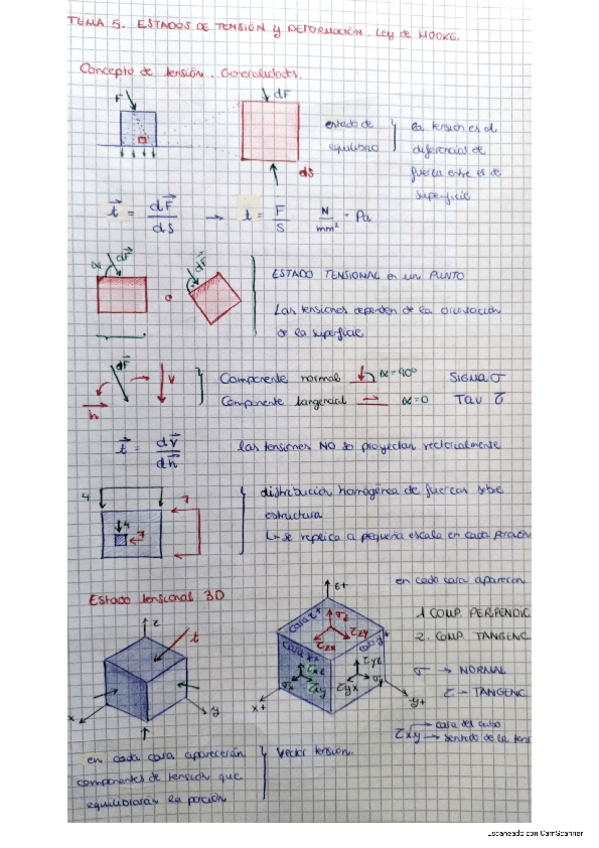 TEMA 5. ESTADOS DE TENSIÓN y DEFORMACIÓN. Ley de HOOKE.
Concepto de tensión. Generalidades.
F
dF
dS
estado de
equilibrio
la tensión es el
diferencial de
fuerza entre es de
superficie
t = dF/dS → t = F/S N/mm² = Pa
α dF
o
dF
ESTADO TENSIONAL en un PUNTO
Las tensiones dependen de la orientación
de la superficie
dF
V
h
Componente normal α=90º SIGMA σ
Componente tangencial → α=0 TAU τ
t = dV/dh
las tensiones NO se proyectan vectorialmente
4
7
4
7
distribución homogénea de fuerzas sobre
estructura
↳ se replica a pequeña escala en cada porción
Estado tensional 3D
z
t
x
y
z+
cara z+
σz
τzx
τzy
cara x+
cara y+
τxz
σx
τxy
τyz
τyx
σy
x+
y+
en cada cara aparecen
1 COMP. PERPENDIC
2. COMP. TANGENC
σ → NORMAL
τ → TANGENC
τxy → cara del cubo
→ sentido de la tens
en cada cara aparecerán
componentes de tensión que
equilibrarán la porción
Vector tensión.
Escaneado con CamScanner